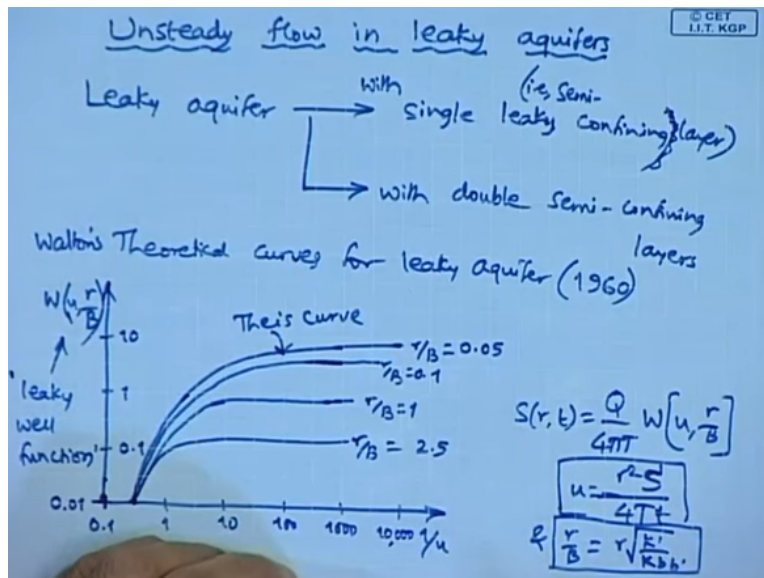 © CET
I.I.T. KGP
Unsteady flow in leaky aquifers
Leaky aquifer → with single leaky confining layer)
(i.e, semi-
→ with double semi-confining
layers
Walton's Theoretical curves for leaky aquifer (1960)
W(u, r/B)
Theis curve
10
1
0.1
0.01
'leaky
well
function'
r/B = 0.05
r/B = 0.1
r/B = 1
r/B = 2.5
0.1 1 10 100 1000 10,000 1/u
S(r, t) = Q/4πT W[u, r/B]
u = r²S/4Tt
& r/B = r√K'/Kbb'